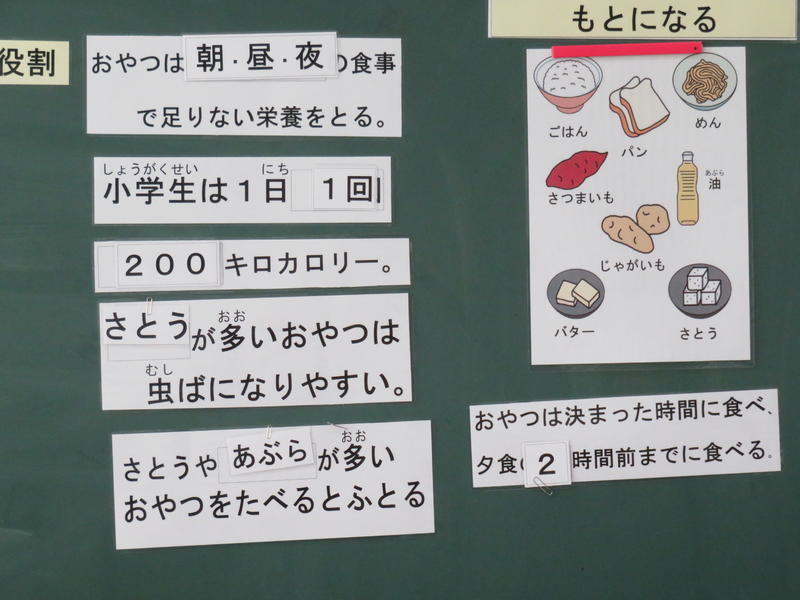 役割
おやつは朝・昼・夜の食事
で足りない栄養をとる。
しょうがくせい にち
小学生は１日１回
２００キロカロリー。
おお
さとうが多いおやつは
むし
虫ばになりやすい。
おお
さとうやあぶらが多い
おやつをたべるとふとる
もとになる
ごはん
パン
めん
さつまいも
あぶら
油
じゃがいも
バター
さとう
おやつは決まった時間に食べ、
夕食の２時間前までに食べる。